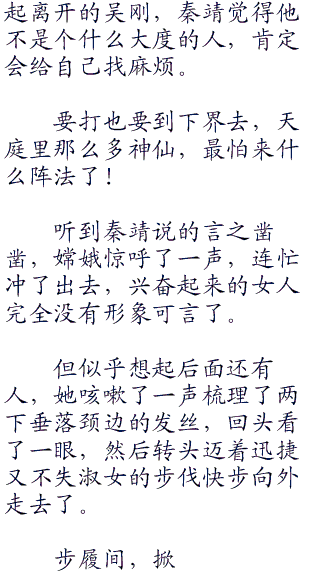 起离开的吴刚，秦靖觉得他
不是个什么大度的人，肯定
会给自己找麻烦。
要打也要到下界去，天
庭里那么多神仙，最怕来什
么阵法了！
听到秦靖说的言之凿
凿，嫦娥惊呼了一声，连忙
冲了出去，兴奋起来的女人
完全没有形象可言了。
但似乎想起后面还有
人，她咳嗽了一声梳理了两
下垂落颈边的发丝，回头看
了一眼，然后转头迈着迅捷
又不失淑女的步伐快步向外
走去了。
步履间，掀